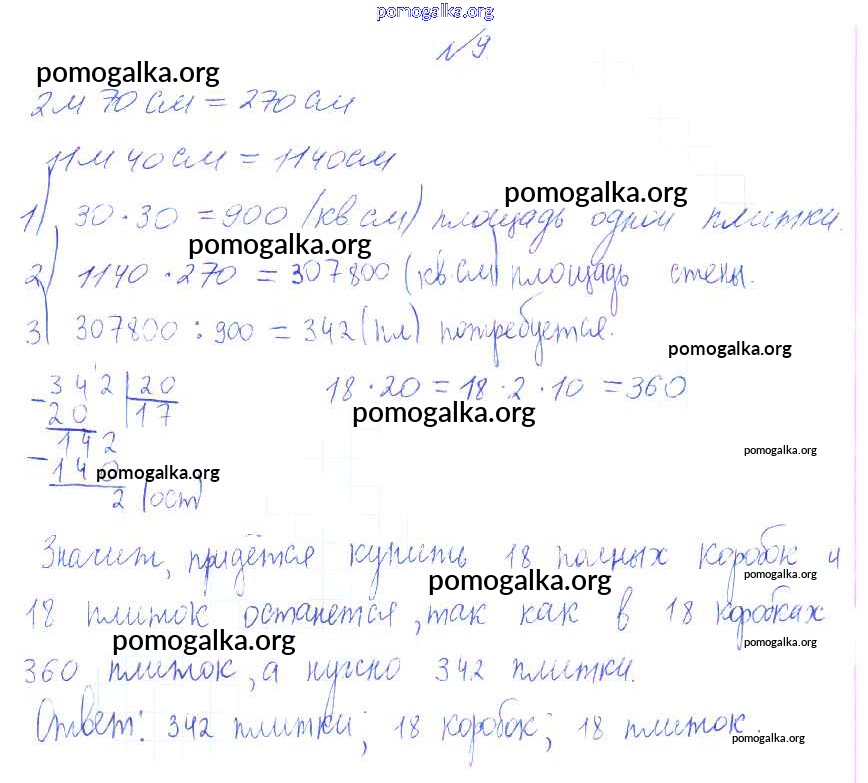 pomogalka.org
№9.
pomogalka.org
2м 70см = 270см
11м 40см = 1140см
pomogalka.org
1) 30·30 = 900 (кв.см) площадь одной плитки.
pomogalka.org
2) 1140·270 = 307800 (кв.см) площадь стены.
3) 307800 : 900 = 342 (пл) потребуется.
pomogalka.org
- 342 | 20    18·20 = 18·2·10 = 360
20 | 17
pomogalka.org
142
pomogalka.org
- 140
pomogalka.org
2 (ост)
Значит, придётся купить 18 полных коробок и
pomogalka.org
pomogalka.org
18 плиток останется, так как в 18 коробках
pomogalka.org
pomogalka.org
360 плиток, а нужно 342 плитки.
Ответ: 342 плитки; 18 коробок; 18 плиток.
pomogalka.org